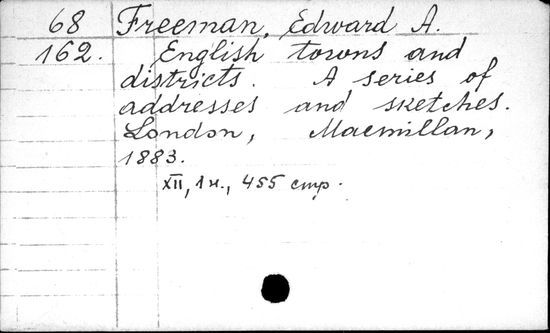 68 Freeman, Edward A.
162. English towns and
districts. A series of
addresses and sketches.
London, Macmillan,
1883.
XII, 1 н., 455 стр.